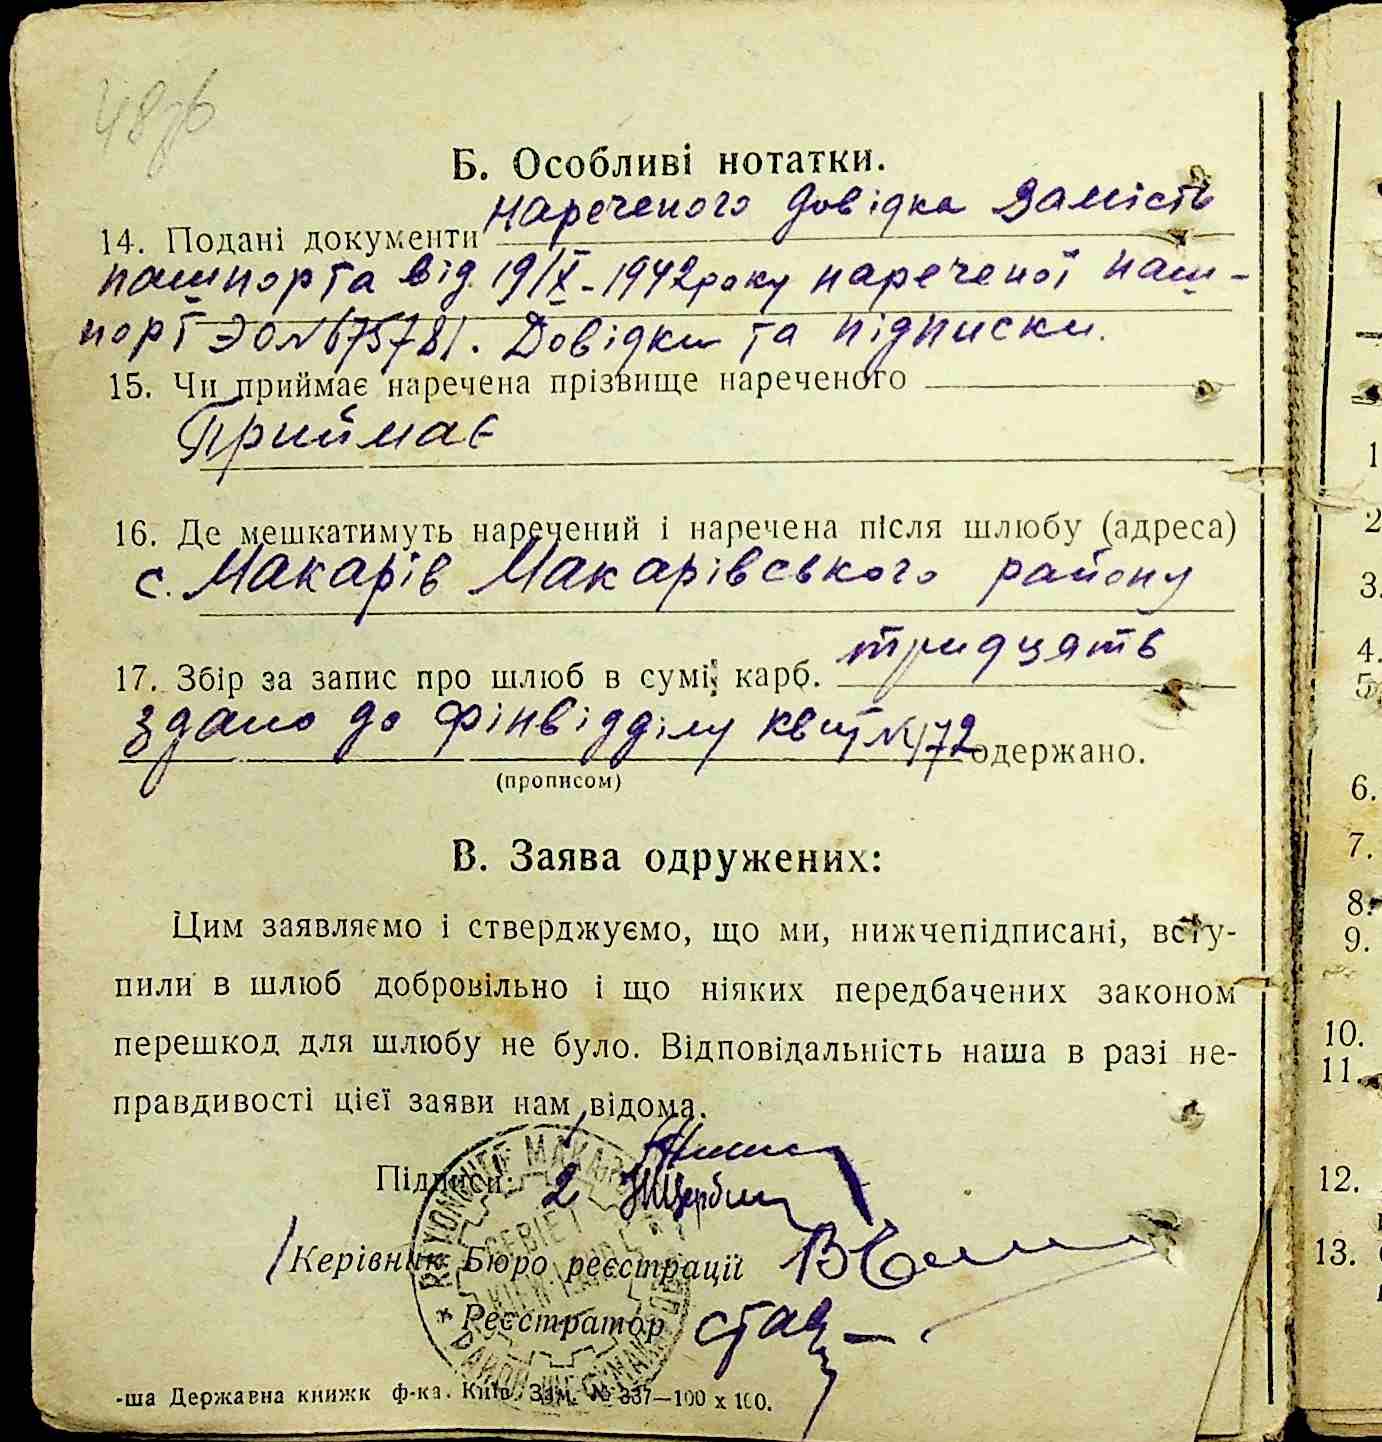 48зв
Б. Особливі нотатки.
14. Подані документи нареченого довідка замість
пашпорта від 19/X-1942 року нареченої паш-
порт ЭО № 675781. Довідки та підписки.
15. Чи приймає наречена прізвище нареченого
Приймає
16. Де мешкатимуть наречений і наречена після шлюбу (адреса)
с. Макарів Макарівського району
17. Збір за запис про шлюб в сумі карб. тридцять
здано до фінвідділу квит № 172 одержано.
(прописом)
В. Заява одружених:
Цим заявляємо і стверджуємо, що ми, нижчепідписані, всту-
пили в шлюб добровільно і що ніяких передбачених законом
перешкод для шлюбу не було. Відповідальність наша в разі не-
правдивості цієї заяви нам відома.
Підписи:
2
Керівник Бюро реєстрації
Реєстратор
-ша Державна книжк ф-ка. Київ. Зам. № 337—100 х 100.
1
2
3.
4.
5
6.
7.
8.
9.
10.
11.
12.
13.